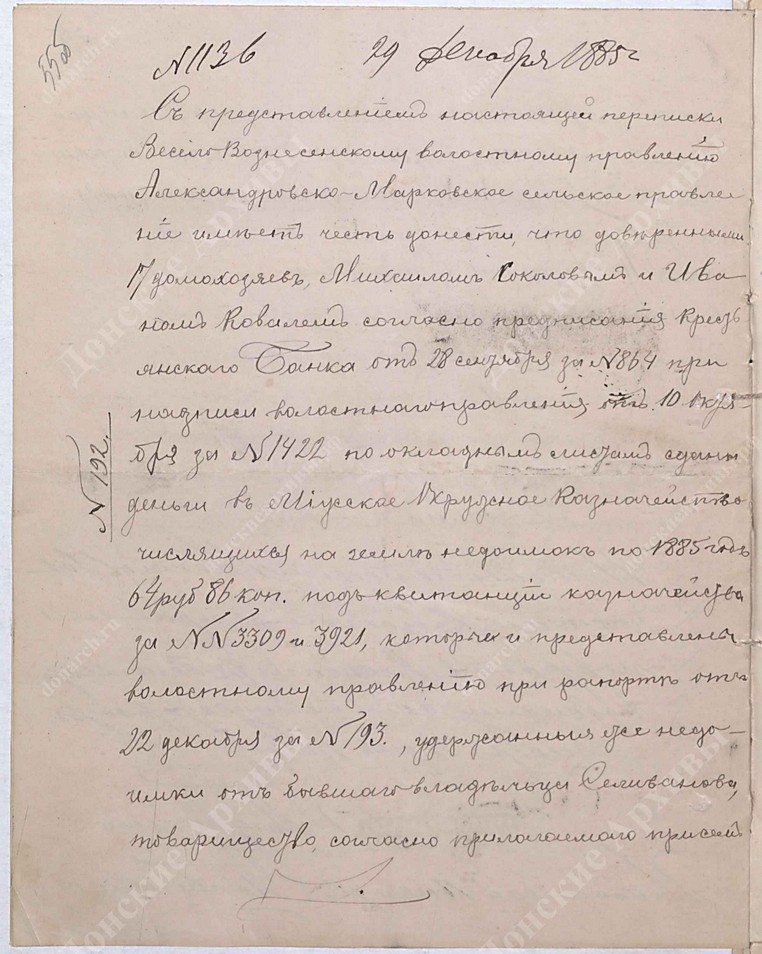 55об
№ 1136 29 Декабря 1885 г
Съ представленіемъ настоящей переписки
Весело Вознесенскому волостному правленію
Александровско-Марковское сельское правле
ніе имѣетъ честь донести, что довѣренными
17 домохозяевъ, Михаиломъ Соколовымъ и Ива
номъ Ковалемъ согласно предписанія Кресть
янскаго Банка отъ 28 сентября за № 864 при
надписи волостнаго правленія отъ 10 Октя-
бря за № 1422 по окладнымъ листамъ сданы
деньги въ Міусское Окружное Казначейство
числящихся на землѣ недоимокъ по 1885 годъ
64 руб 86 коп. подъ квитанціи казначейства
за №№ 3309 и 3921, которыя и представлены
волостному правленію при рапортѣ отъ
22 декабря за № 193., удержанныя же недо-
имки отъ бывшаго владѣльца Селиванова,
товарищество, согласно прилагаемаго присемъ
№ 192.
Донские Архивы
donarch.ru